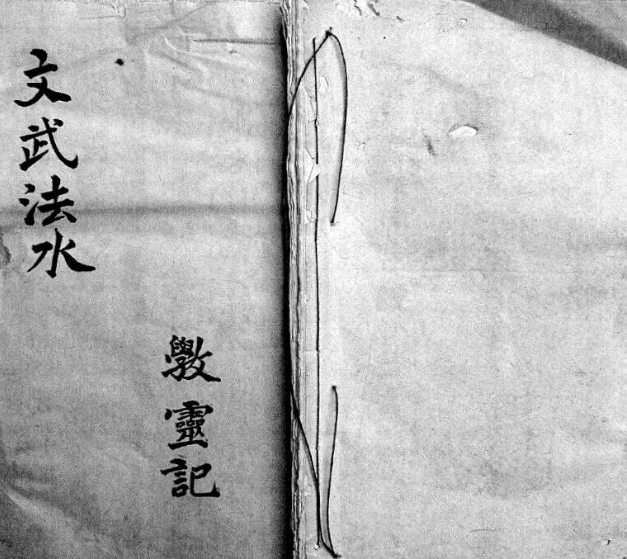 文武法水
斅靈記